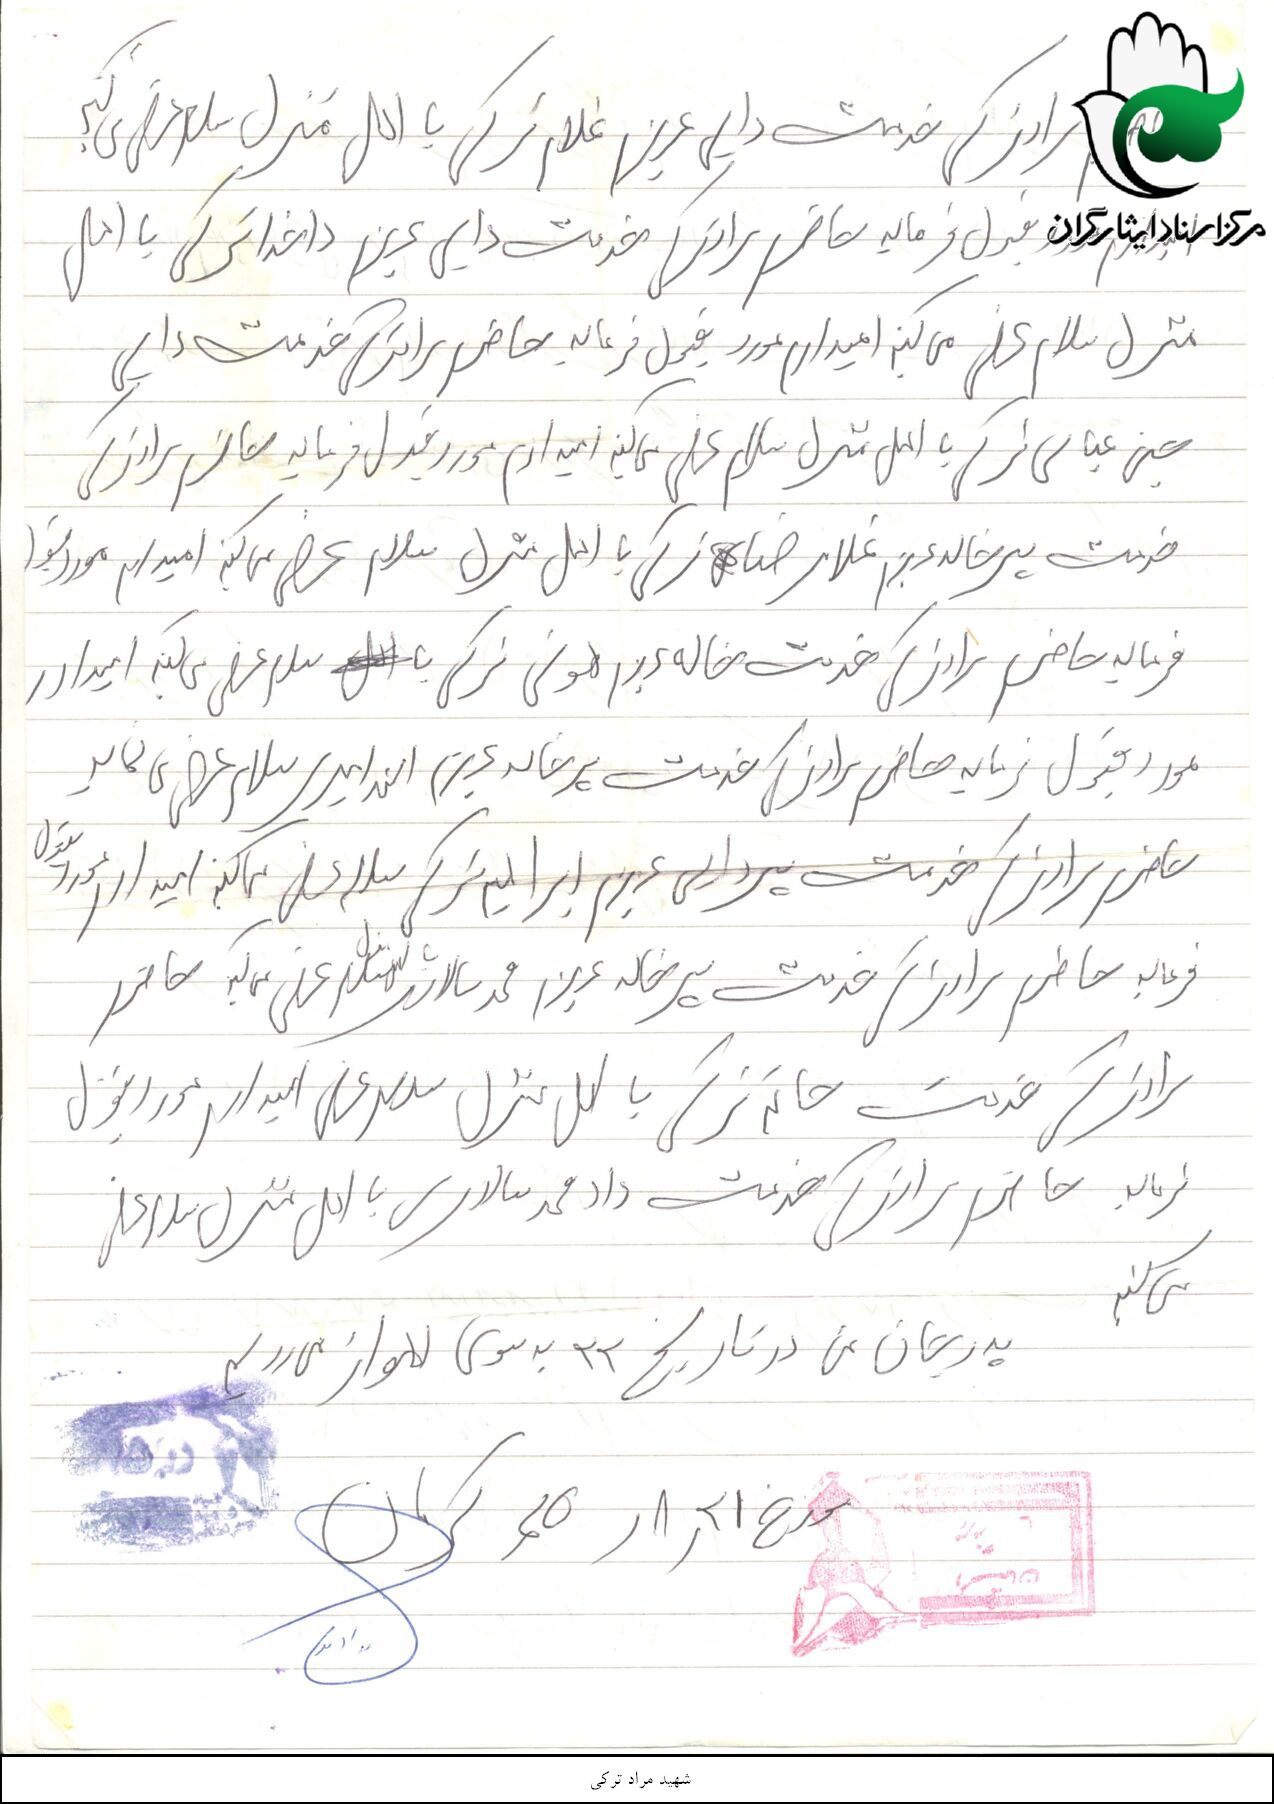 مرکز اسناد ایثارگران
مراد ترکی خدمت دایی عزیزم غلام ترکی با اهل منزل سلام عرض می کنم
قبول فرماید حاضرم مراد ترکی خدمت دایی عزیزم دادخدا ترکی با اهل
منزل سلام عرض می کنم امیدارم مورد قبول فرماید حاضرم مراد ترکی خدمت دایی
عباس ترکی با اهل منزل سلام عرض می کنم امیدارم مورد قبول فرماید حاضرم مراد ترکی
خدمت پسرخاله عزیزم غلامرضا ترکی با اهل منزل سلام عرض می کنم امیدارم مورد
فرماید حاضرم مراد ترکی خدمت خاله عزیزم ترکی با سلام عرض می کنم امیدارم
مورد قبول فرماید حاضرم مراد ترکی خدمت پسرخاله عزیزم سلام عرض می نماید
حاضرم مراد ترکی خدمت پسردایی عزیزم ابراهیم ترکی سلام عرض می کنم امیدارم مورد قبول
فرماید حاضرم مراد ترکی خدمت پسرخاله عزیزم محمد سلام عرض می کنم حاضرم
مراد ترکی خدمت ترکی با اهل منزل سلام عرض امیدارم مورد قبول
فرماید حاضرم مراد ترکی خدمت دادمحمد سالاری با اهل منزل سلام عرض
می کنم
پدرجان من در تاریخ ۲۳ به سوی اهواز می رویم
مورخ کرمان
شهید مراد ترکی